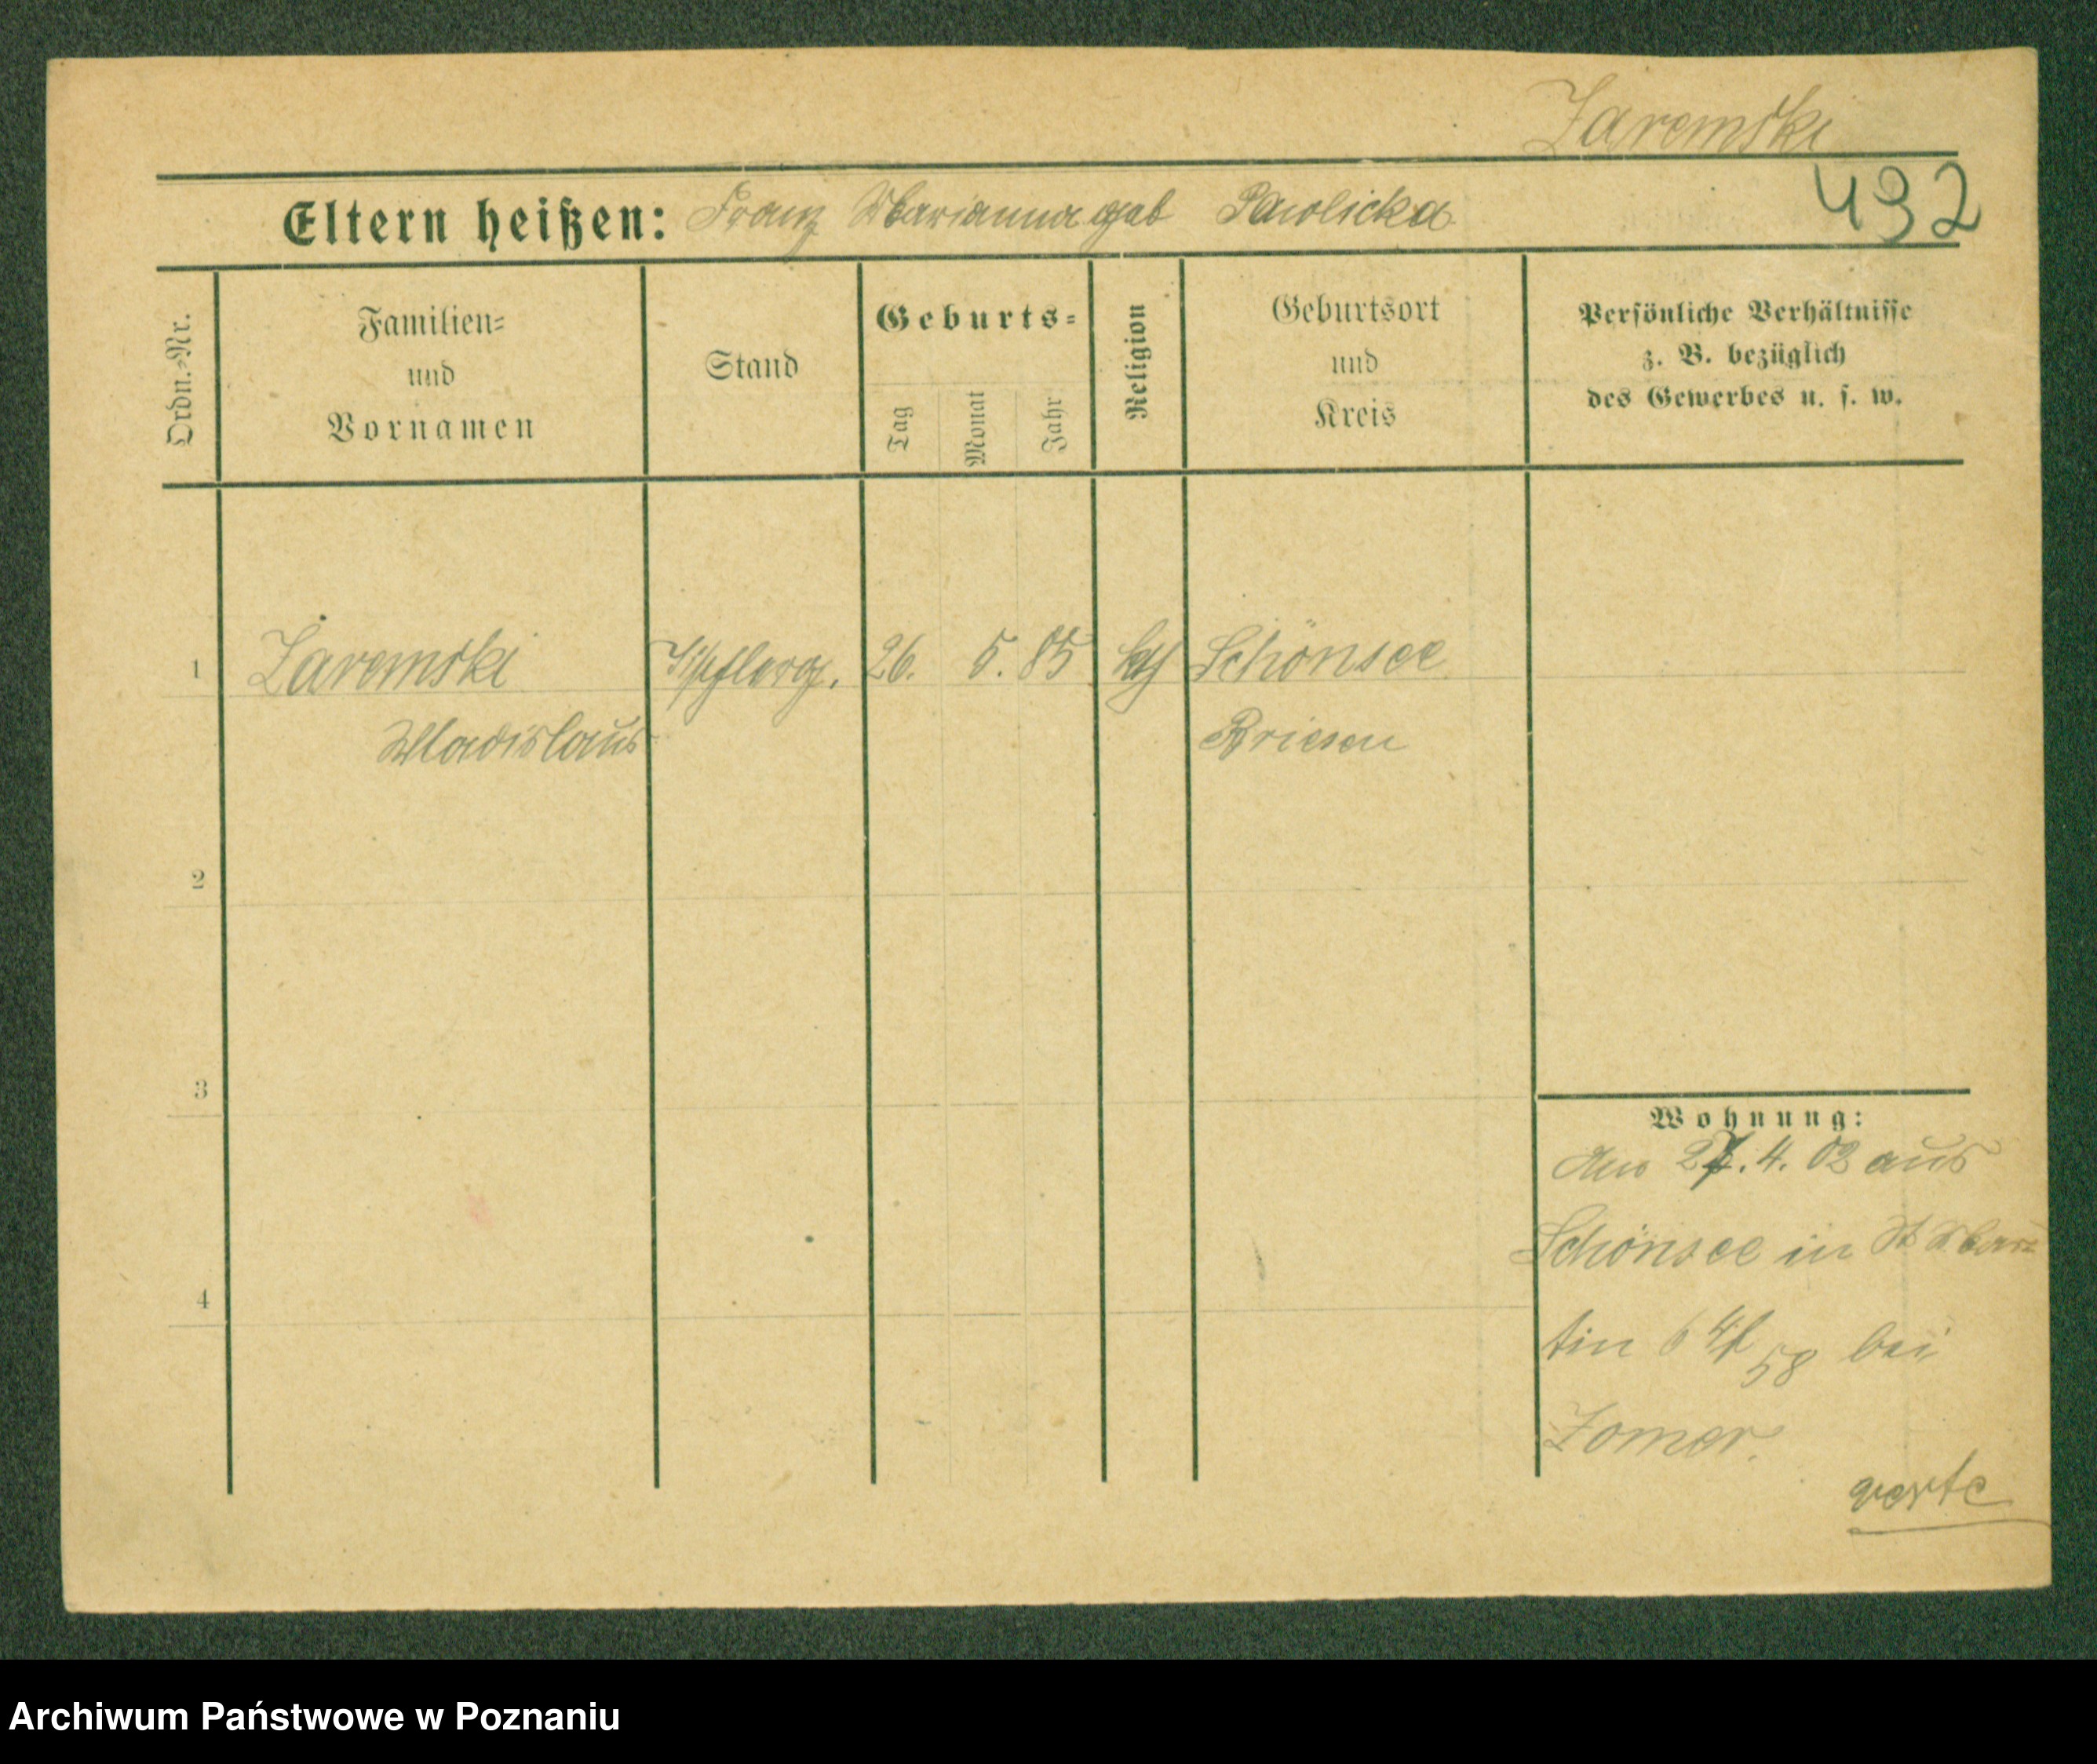 Zaremski
432
Eltern heißen: Franz Marianna geb Pawlicka
Ordn.-Nr.
Familien-
und
Vornamen
Stand
Geburts-
Tag
Monat
Jahr
Religion
Geburtsort
und
Kreis
Persönliche Verhältnisse
z. B. bezüglich
des Gewerbes u. s. w.
1 Zaremski 26. 5. 85 kth Schönsee
Wladislaus Briesen
2
3
4
Wohnung:
27. 4. 02 aus
Schönsee in St Mar-
tin 64 58 bei
Zomer.
verte
Archiwum Państwowe w Poznaniu